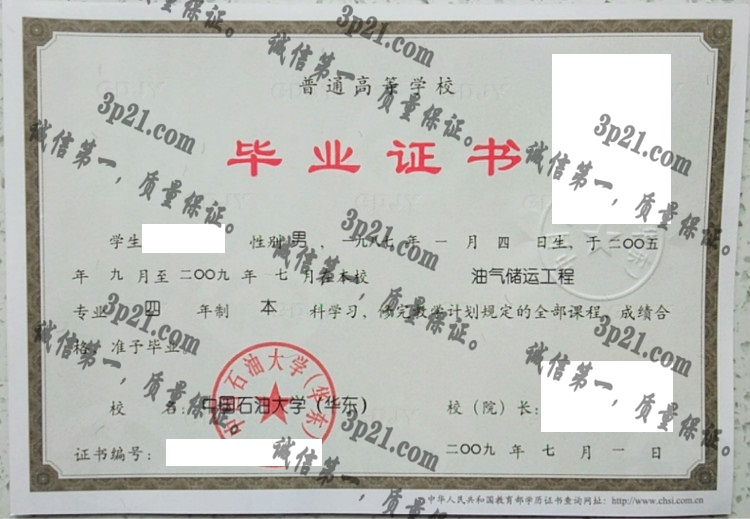 普通高等学校
毕业证书
学生 性别 男，一九八七年 一 月 四 日生，于二〇〇五
年 九 月至二〇〇九年 七 月在本校 油气储运工程
专业 四 年制 本 科学习，修完教学计划规定的全部课程，成绩合
格，准予毕业。
校 名：中国石油大学（华东） 校（院）长：
证书编号： 二〇〇九年 七 月 一 日
中华人民共和国教育部学历证书查询网址：http://www.chsi.com.cn
中国石油大学(华东)
3p21.com
诚信第一，质量保证。
3p21.com
诚信第一，质量保证。
3p21.com
诚信第一，质量保证。
3p21.com
诚信第一，质量保证。
3p21.com
诚信第一，质量保证。
3p21.com
诚信第一，质量保证。
3p21.com
诚信第一，质量保证。